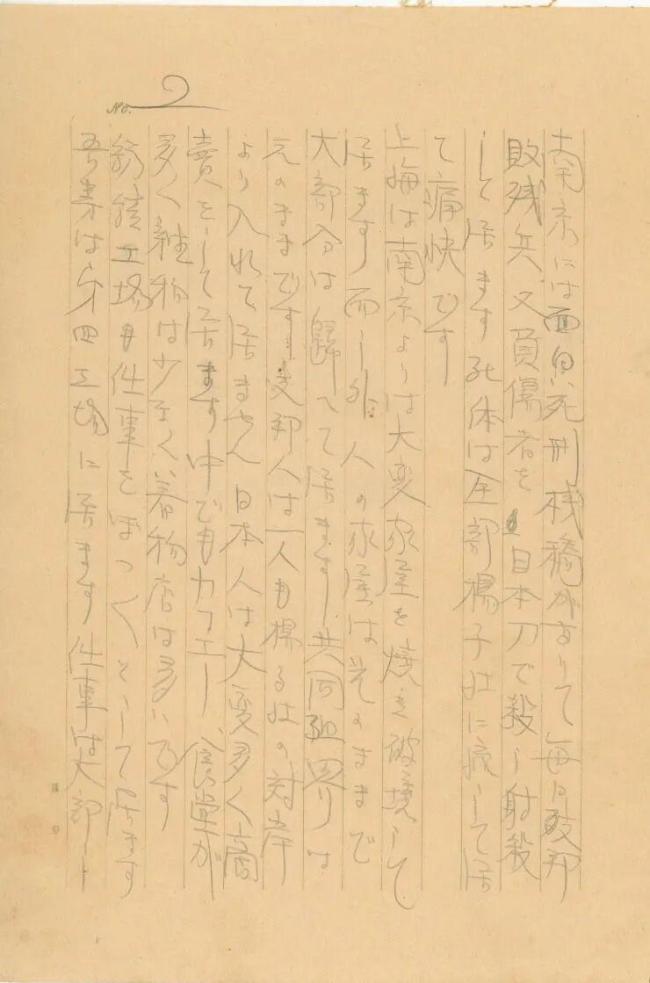 No. 2
南京には面白い死刑桟橋がありて毎日支那
敗残兵又負傷者を日本刀で殺し射殺
して居ます死体は全部楊子江に流して居
て痛快です
上海は南京よりは大変家屋を焼き破壊して
居ます而し外人の家屋は其のままで
大部分は歸へて居ます共同租界りは
元のままです支那人は一人も楊る江の対岸
より入れて居ません日本人は大変多く商
賣をして居ます中でもカフエー、食堂が
多く雑物は少なく着物店は多いです
紡績工場も仕事をぼつ〱として居ます
吾等は第四工場に居ます仕事は大部し